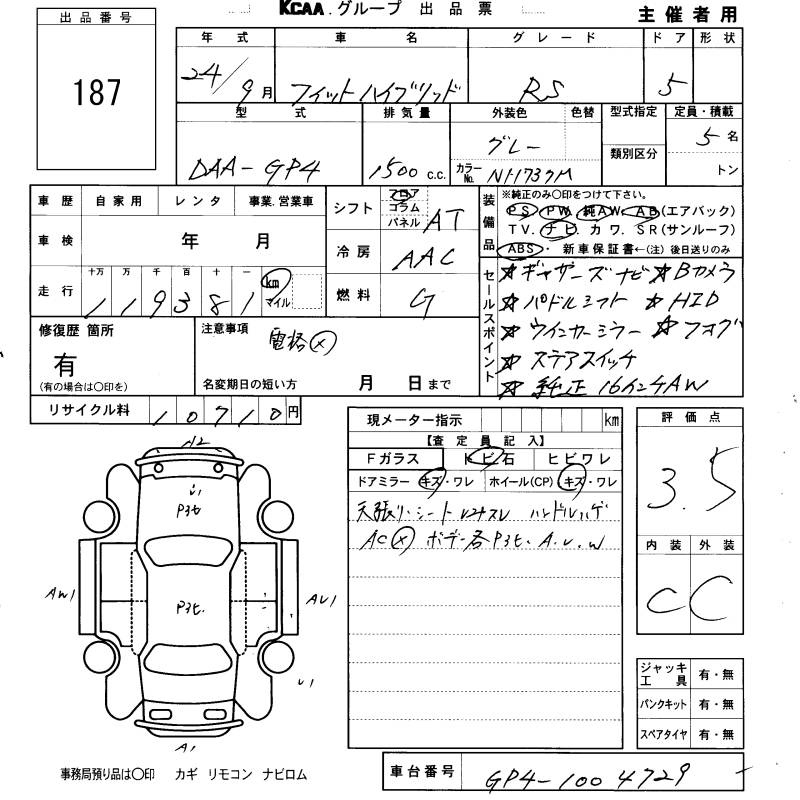 KCAA.グループ 出品票
主催者用
出品番号
187
年式 車名 グレード ドア 形状
24/9月 フィットハイブリッド RS 5
型式 排気量 外装色 色替 型式指定 定員・積載
DAA-GP4 1500 c.c. グレー カラーNo. NH737M 類別区分 5名
トン
車歴 自家用 レンタ 事業.営業車
車検 年 月
走行 十万 万 千 百 十 一
119381 km マイル
シフト フロア コラム パネル AT
冷房 AAC
燃料 G
装備品
※純正のみ○印をつけて下さい。
PS PW 純AW AB(エアバック)
TV. ナビ. カワ. SR(サンルーフ)
ABS・ 新車保証書←(注)後日送りのみ
セールスポイント
☆ギャザーズナビ ☆Bカメラ
☆パドルシフト ☆HID
☆ウインカーミラー ☆フォグ
☆ステアスイッチ
☆純正16インチAW
修復歴 箇所
有
(有の場合は○印を)
注意事項
電格(×)
名変期日の短い方 月 日まで
リサイクル料 10710円
現メーター指示 km
【査定員記入】
Fガラス トビ石 ヒビワレ
ドアミラー キズ・ワレ ホイール(CP) キズ・ワレ
天張り・シート ハンドルハゲ
AC(×) ボデー各P3セ. A.U.W
評価点
3.5
内装 外装
C C
ジャッキ工具 有・無
パンクキット 有・無
スペアタイヤ 有・無
A2
U1
P3セ
P3セ.
AW1
AU1
U1
A1
事務局預り品は○印 カギ リモコン ナビロム
車台番号 GP4-1004729